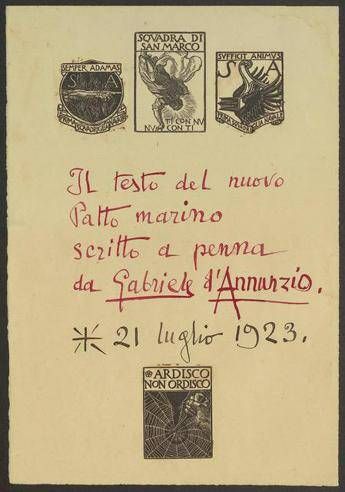 SEMPER ADAMAS
S A
SQVADRA DI
SAN MARCO
TI CON NV
CON TI
SVFFICIT ANIMVS
S A
Il testo del nuovo
Patto marino
scritto a penna
da Gabriele d'Annunzio.
21 luglio 1923.
ARDISCO
NON ORDISCO